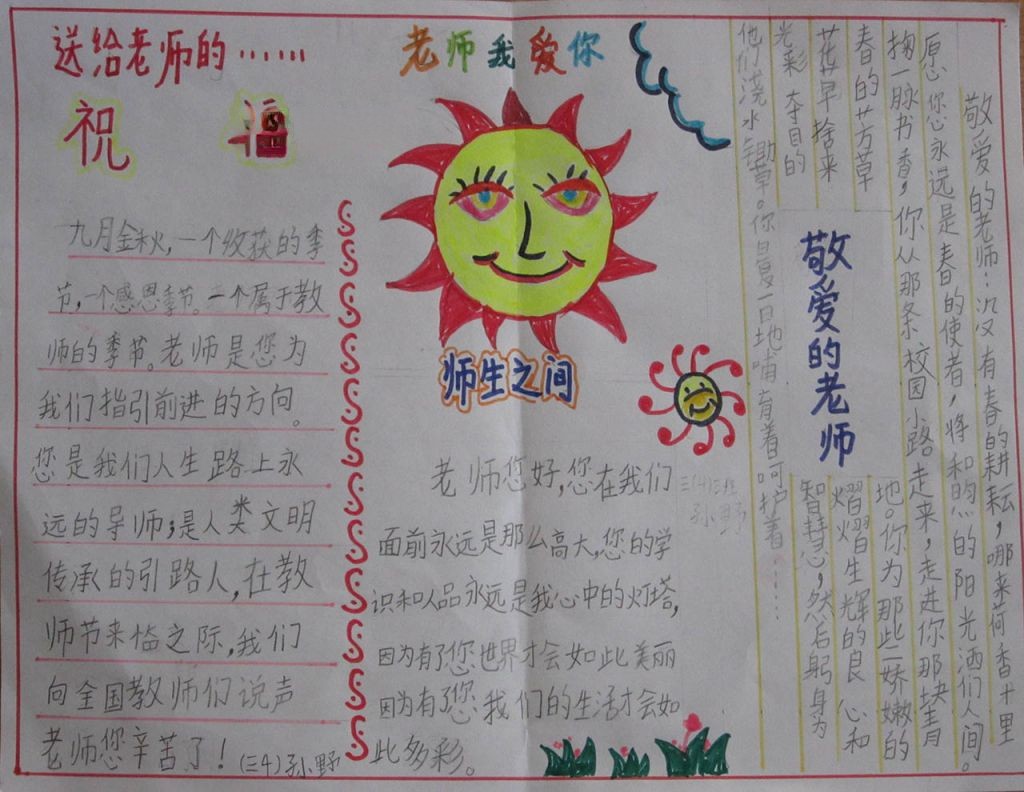 送给老师的……
祝福
九月金秋,一个收获的季
节,一个感恩季节。一个属于教
师的季节。老师是您为
我们指引前进的方向。
您是我们人生路上永
远的导师;是人类文明
传承的引路人,在教
师节来临之际,我们
向全国教师们说声
老师您辛苦了!(三4)孙野
老师我爱你
师生之间
老师您好,您在我们
面前永远是那么高大,您的学
识和人品永远是我心中的灯塔,
因为有了您世界才会如此美丽
因为有了您我们的生活才会如
此多彩。
三(4)班
孙野
敬爱的老师
敬爱的老师:没有春的耕耘,哪来荷香十里
愿您永远是春的使者,将和煦的阳光洒们人间。
掬一脉书香,你从那条校园小路走来,走进你那块青
春的芳草地。你为那些娇嫩的
花草捨来熠熠生辉的良心和
光彩夺目的智慧,然后躬身为
他们浇水锄草。你日复一日地哺育着呵护着……